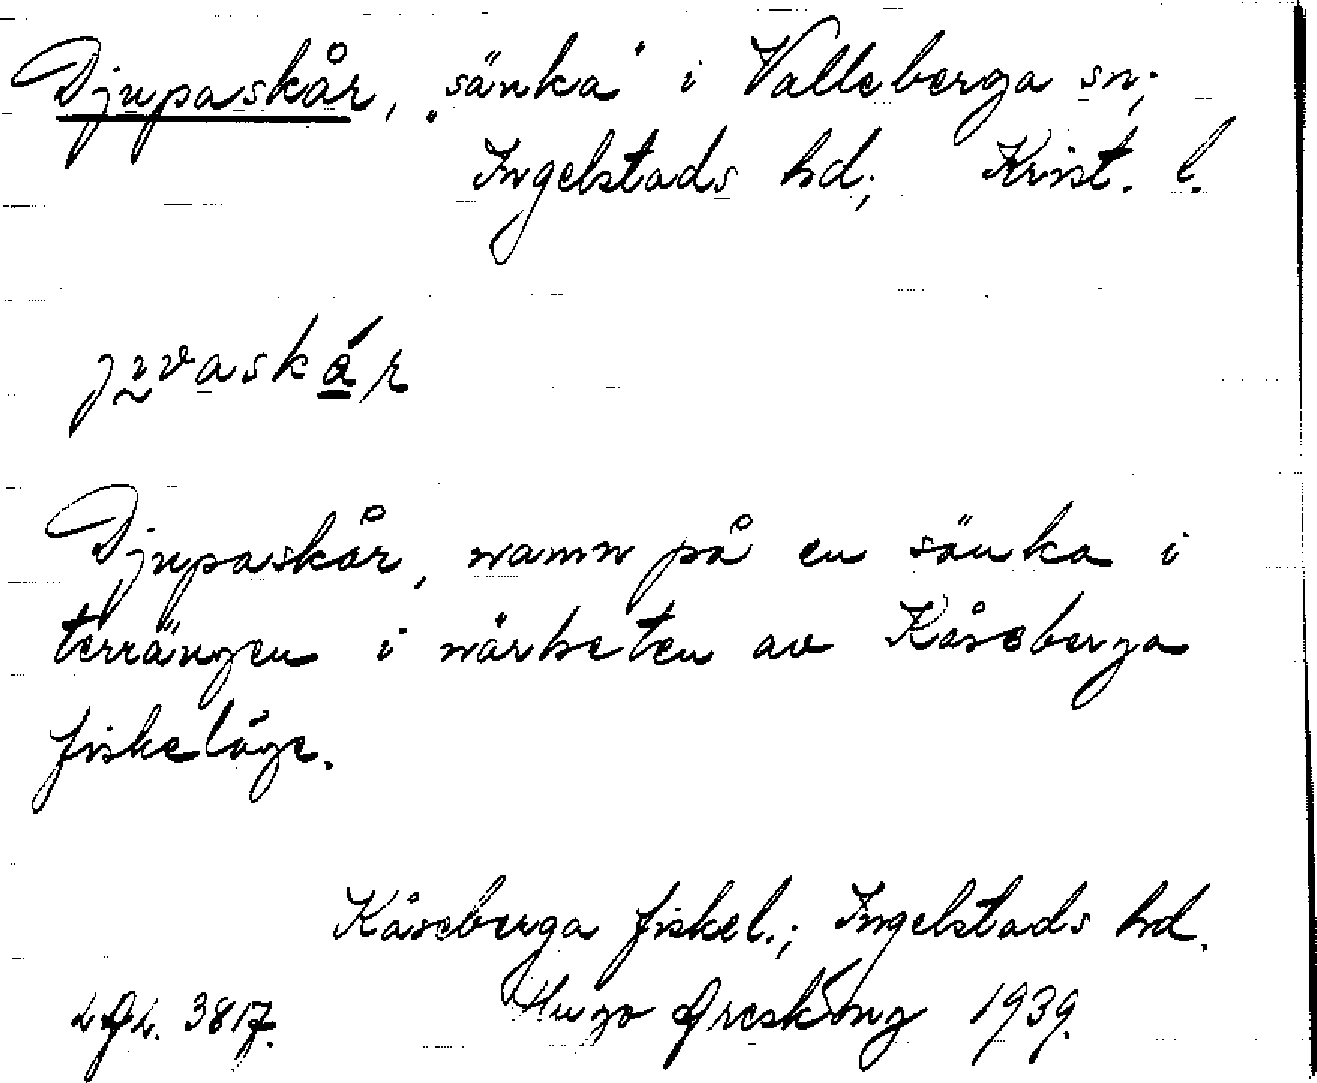 Djupaskår, "sänka" i Valleberga sn;
Ingelstads hd; Krist. l.
juvaskár
Djupaskår, namn på en sänka i
terrängen i närheten av Kåseberga
fiskeläge.
Kåseberga fiskel.; Ingelstads hd.
3817. Hugo Areskoug 1939.